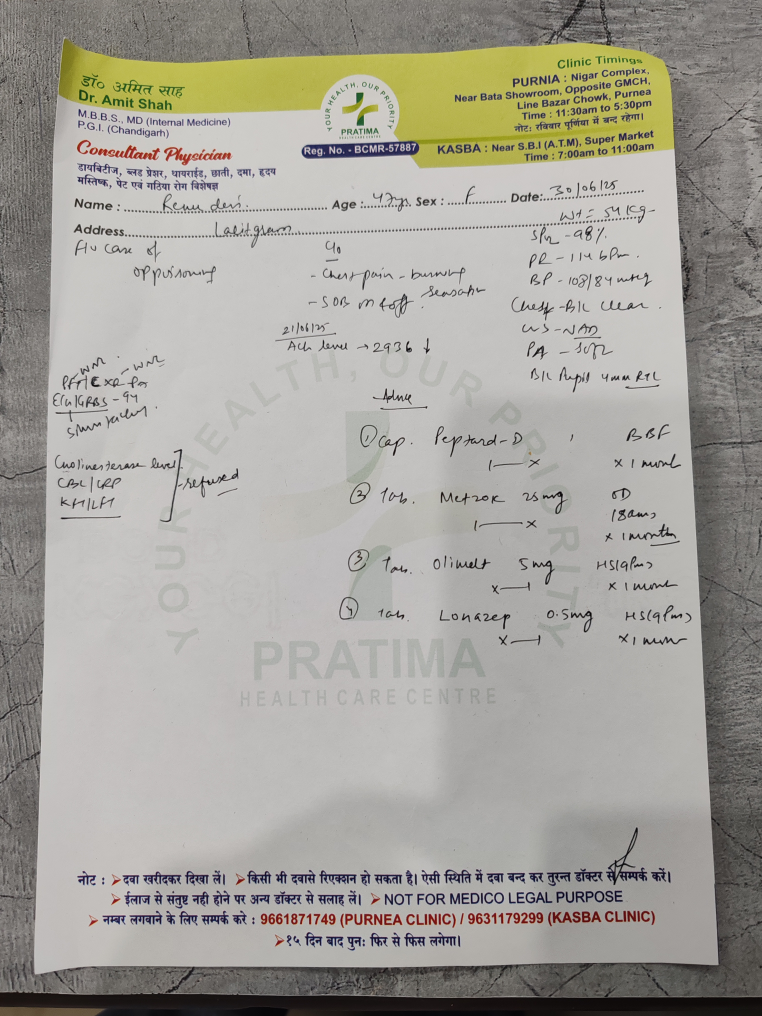 डॉ० अमित साह
Dr. Amit Shah
M.B.B.S., MD (Internal Medicine)
P.G.I. (Chandigarh)
Consultant Physician
डायबिटीज, ब्लड प्रेशर, थायराईड, छाती, दमा, हृदय
मस्तिष्क, पेट एवं गठिया रोग विशेषज्ञ
YOUR HEALTH, OUR PRIORITY
PRATIMA
HEALTH CARE CENTRE
Reg. No. - BCMR-57887
Clinic Timings
PURNIA : Nigar Complex,
Near Bata Showroom, Opposite GMCH,
Line Bazar Chowk, Purnea
Time : 11:30am to 5:30pm
नोट: रविवार पूर्णिया में बन्द रहेगा।
KASBA : Near S.B.I (A.T.M), Super Market
Time : 7:00am to 11:00am
Name : Renu devi Age : 47yr Sex : F Date: 30/06/25
Address Lalitgram
Wt = 54 kg
H/o Case of
opposioning
C/o
- Chest pain - burning
sensation
- SOB on & off
21/06/25
Ach level → 2936 ↓
SPO2 - 98%
PR - 114 bpm
BP - 108/84 mmHg
Chest - B/L clear.
CVS - NAD
PA - Soft
B/L Pupil 4mm RTL
WNL WNL
PFT/CXR-PA
ECG/GRBS - 94
Sinus tachy.
Cholinesterase level
CBC/CRP
KFT/LFT
- refused
Advice
① Cap. Peptard-D BBF
1—x x 1 month
② Tab. Metzok 25mg OD
18am)
1—x x 1 month
③ Tab. Olimelt 5mg HS(9pm)
x—1 x 1 month
④ Tab. Lonazep 0.5mg HS(9pm)
x—1 x 1 month
YOUR HEALTH, OUR PRIORITY
PRATIMA
HEALTH CARE CENTRE
नोट : ➤दवा खरीदकर दिखा लें। ➤किसी भी दवासे रिएक्शन हो सकता है। ऐसी स्थिति में दवा बन्द कर तुरन्त डॉक्टर से सम्पर्क करें।
➤ईलाज से संतुष्ट नही होने पर अन्य डॉक्टर से सलाह लें। ➤NOT FOR MEDICO LEGAL PURPOSE
➤नम्बर लगवाने के लिए सम्पर्क करे : 9661871749 (PURNEA CLINIC) / 9631179299 (KASBA CLINIC)
➤१५ दिन बाद पुनः फिर से फिस लगेगा।